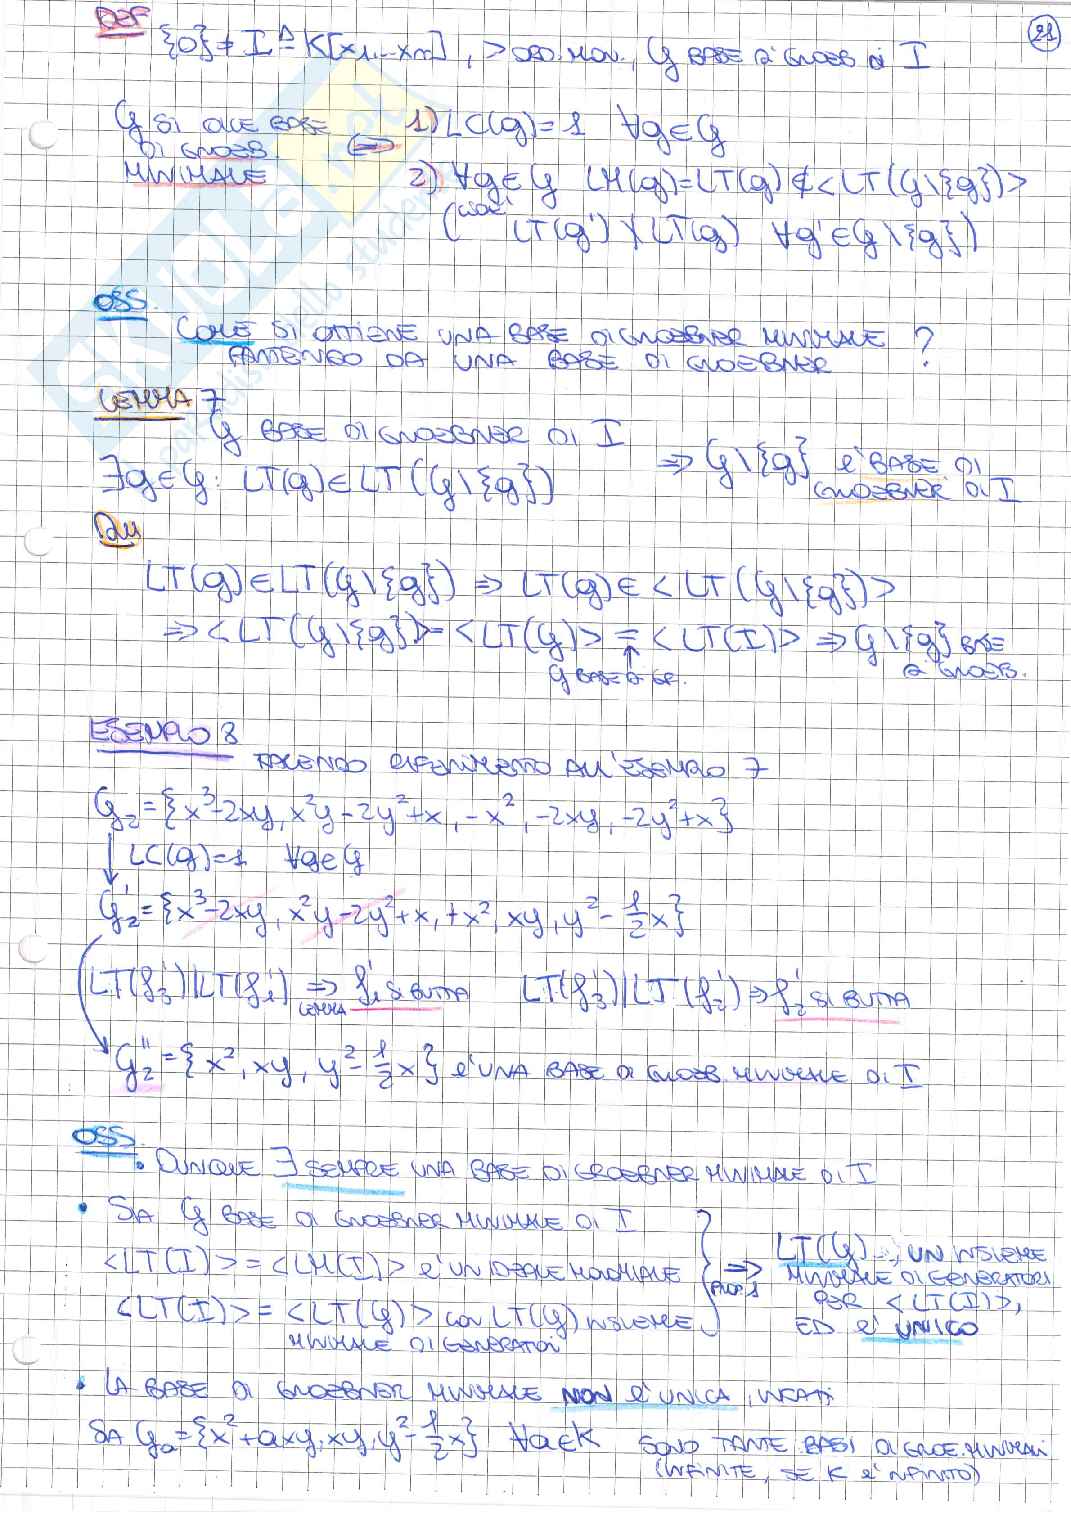 21
DEF
{0} ≠ I ⊴ K[x1,...xn] , > ORD. MON., G BASE DI GROEB DI I
G SI DICE BASE DI GROEB. MINIMALE ⟺ 1) LC(g)=1 ∀g∈G
2) ∀g∈G LM(g)=LT(g)∉<LT(G\{g})>
(CIOÈ LT(g')∤LT(g) ∀g'∈G\{g})
OSS.
COME SI OTTIENE UNA BASE DI GROEBNER MINIMALE
PARTENDO DA UNA BASE DI GROEBNER ?
LEMMA 7
G BASE DI GROEBNER DI I
∃g∈G: LT(g)∈LT(G\{g}) ⇒ G\{g} È BASE DI GROEBNER DI I
DIM
LT(g)∈LT(G\{g}) ⇒ LT(g)∈<LT(G\{g})>
⇒ <LT(G\{g})>=<LT(G)> = <LT(I)> ⇒ G\{g} BASE DI GROEB.
G BASE DI GR.
ESEMPIO 8
FACENDO RIFERIMENTO ALL'ESEMPIO 7
G2={x³-2xy, x²y-2y²+x, -x², -2xy, -2y²+x}
LC(g)=1 ∀g∈G
G2'={x³-2xy, x²y-2y²+x, +x², xy, y²-1/2x}
LT(f3')|LT(f1') ⇒ f1' SI BUTTA LT(f3')|LT(f2') ⇒ f2' SI BUTTA
LEMMA
G2''={x², xy, y²-1/2x} È UNA BASE DI GROEB. MINIMALE DI I
OSS.
• DUNQUE ∃ SEMPRE UNA BASE DI GROEBNER MINIMALE DI I
• SIA G BASE DI GROEBNER MINIMALE DI I
<LT(I)>=<LM(I)> È UN IDEALE MONOMIALE
<LT(I)>=<LT(G)> CON LT(G) INSIEME
MINIMALE DI GENERATORI
⇒ PROP 1
LT(G) È UN INSIEME
MINIMALE DI GENERATORI
PER <LT(I)>,
ED È UNICO
• LA BASE DI GROEBNER MINIMALE NON È UNICA, INFATTI
SIA Ga={x²+axy, xy, y²-1/2x} ∀a∈K SONO TANTE BASI DI GROE. MINIMALI
(INFINITE, SE K È INFINITO)